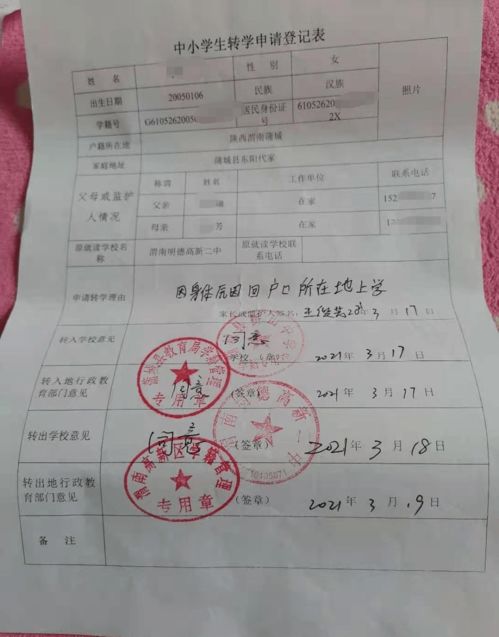 中小学生转学申请登记表
姓 名 性 别 女 照片
出生日期 20050106 民族 汉族
学籍号 G6105262005 居民身份证号 61052620 2X
户籍所在地 陕西渭南蒲城
家庭地址 蒲城县东阳代家
父母或监护人情况 称谓 姓名 工作单位 联系电话
父亲 在家 152 7
母亲 芳 在家
原就读学校名称 渭南明德高新二中 原就读学校联系电话
申请转学理由 因身体原因回户口所在地上学
家长或监护人签名: 3月17日
转入学校意见 同意
学校(章) 2021年3月17日
转入地行政教育部门意见 同意 (签章) 2021年3月17日
蒲城县教育局学籍管理
专用章
转出学校意见 同意 (签章) 2021年3月18日
渭南明德高新一中
转出地行政教育部门意见 (签章) 2021年3月19日
渭南高新区学籍管理
专用章
备 注